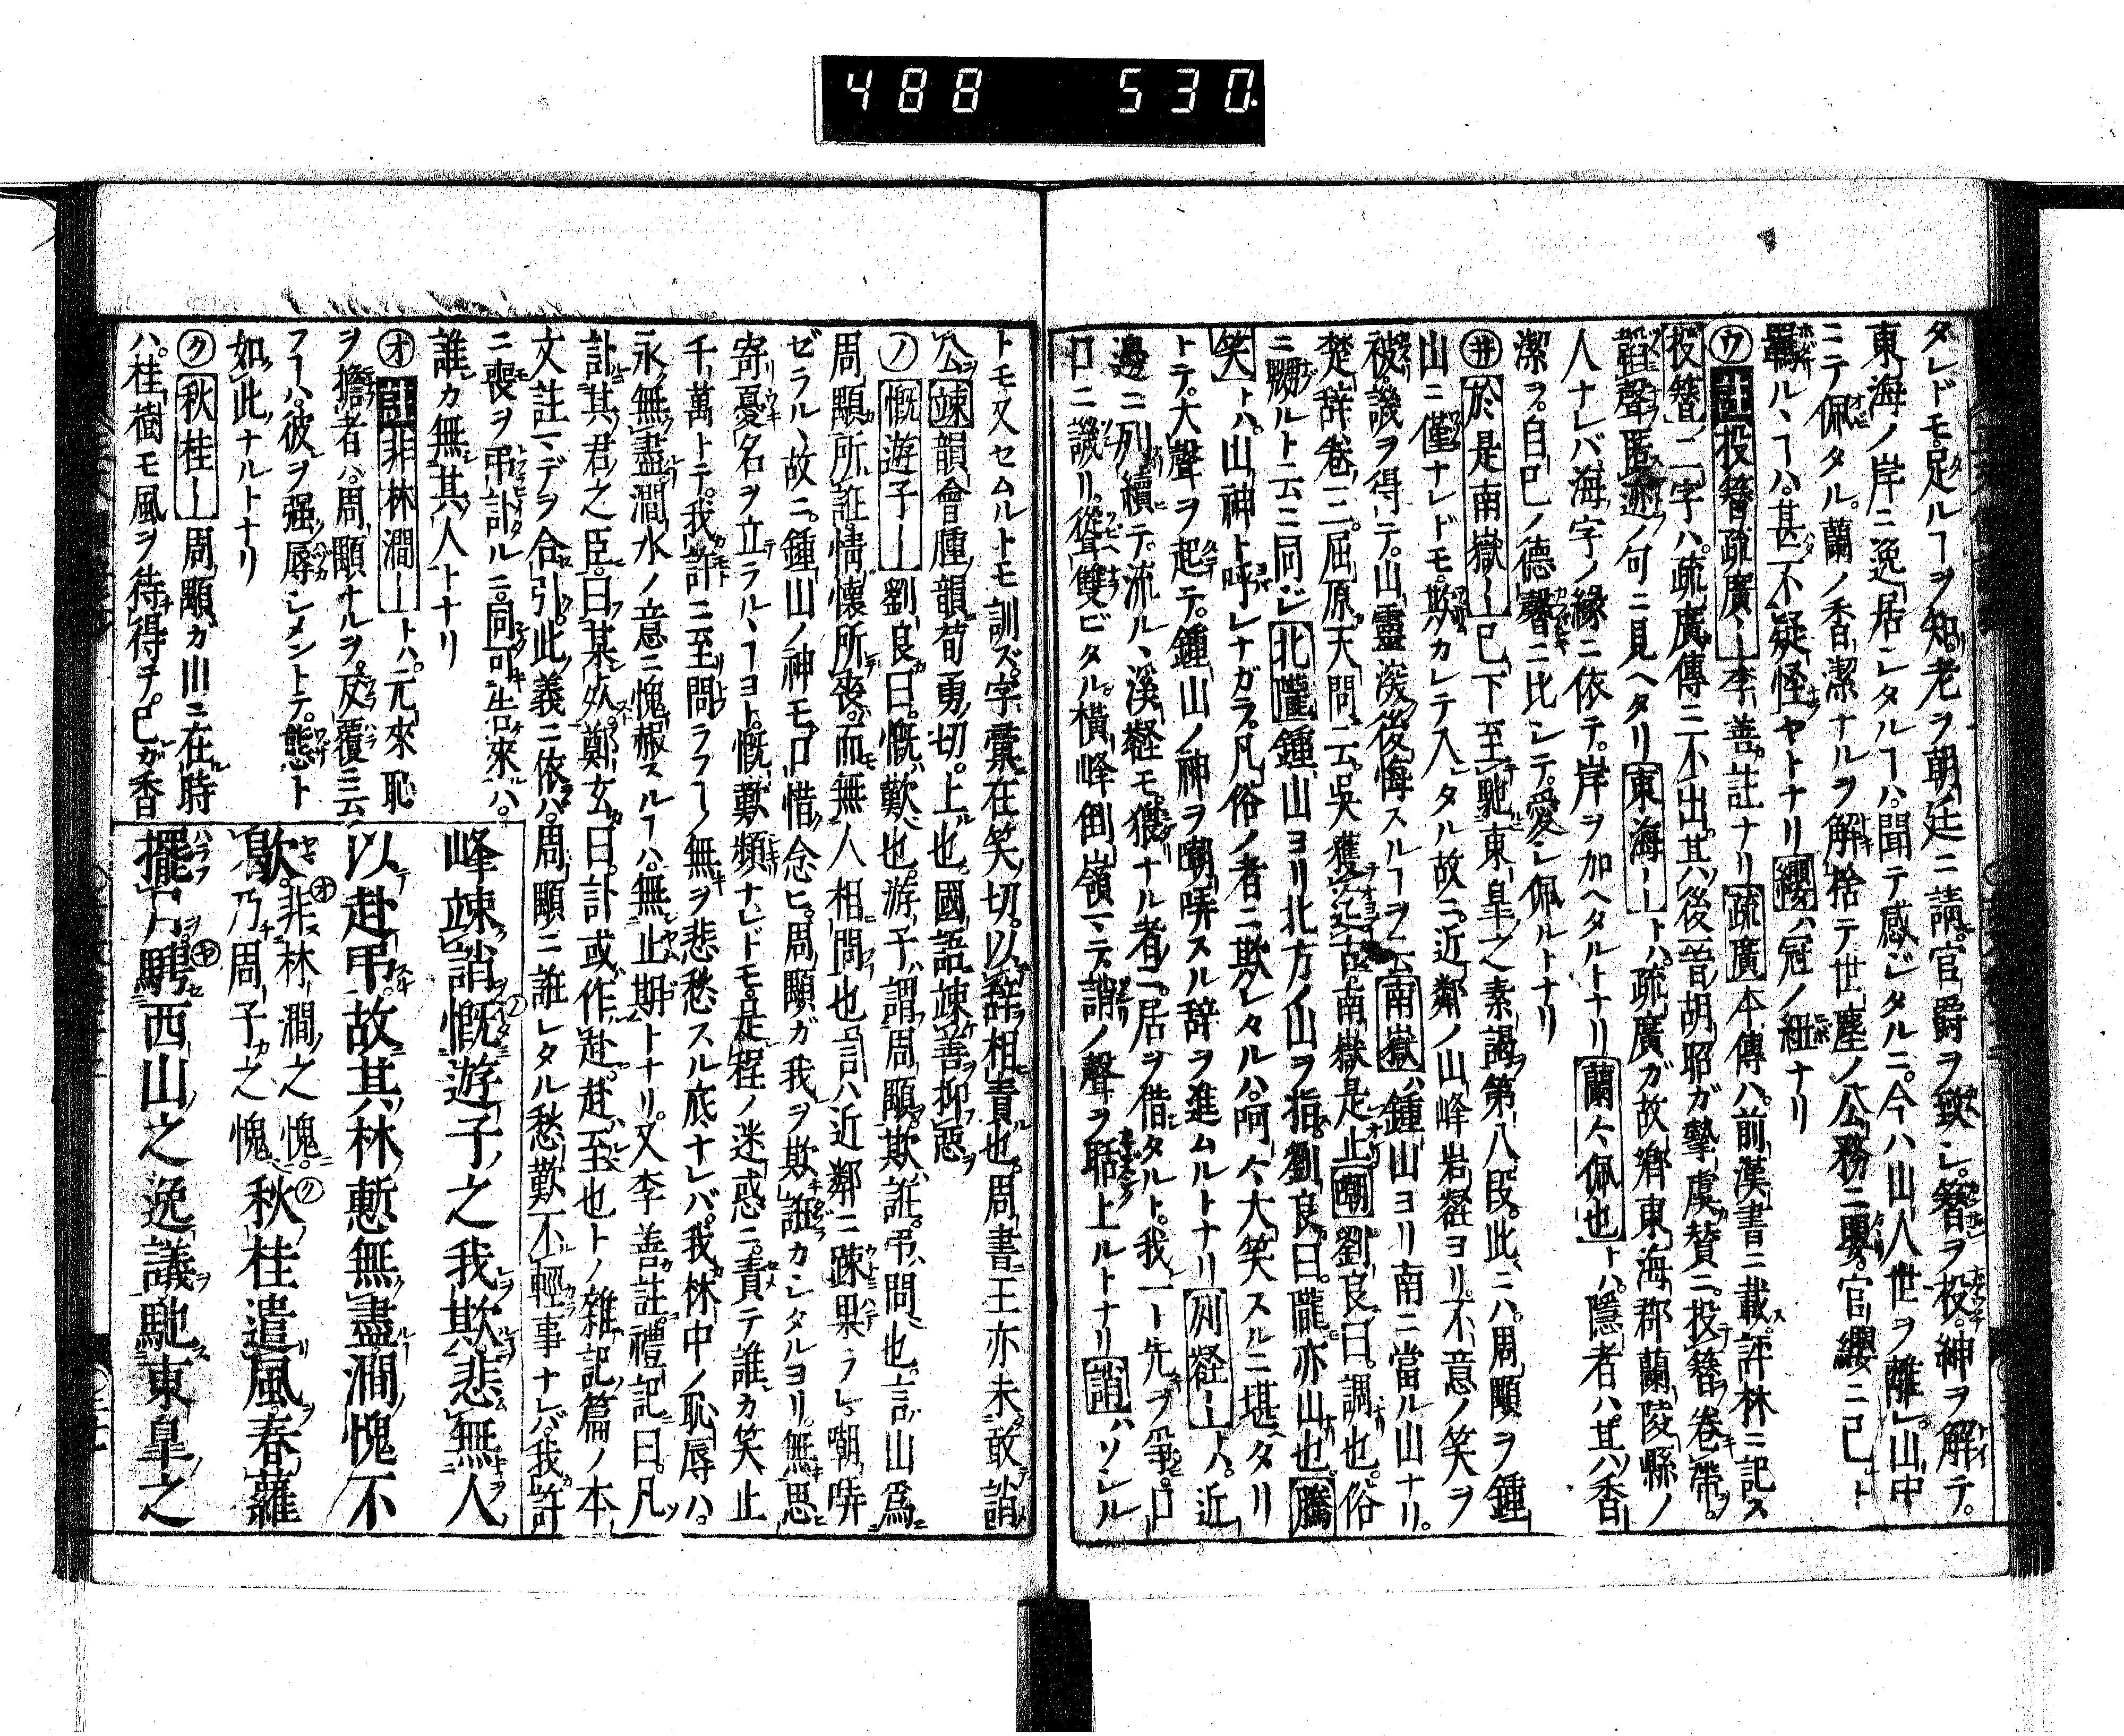 488 530
タレドモ足ルヿヲ知老ヲ朝廷ニ請官爵ヲ致シ簪ヲ投紳ヲ解テ
東海ノ岸ニ逸居シタルヿハ聞テ感ジタルニ今ハ山人世ヲ離山中
ニテ佩タル蘭ノ香潔ナルヲ解捨テ世塵ノ公務ニ嬰官纓ニ己ト
羈ルヽヿハ甚不疑怪ヤトナリ纓ハ冠ノ紐ナリ
ウ註投簪疏廣ー李善註ナリ疏廣本傳ハ前漢書ニ載許林ニ記ス
投簪ノ二字ハ疏廣傳ニ不出其後晋胡昭ガ摯虞賛ニ投簪卷帶
韜聲匿迹ノ句ニ見ヘタリ東海ートハ疏廣ガ故郷東海郡蘭陵縣ノ
人ナレバ海字ノ縁ニ依テ岸ヲ加ヘタルトナリ蘭今佩也トハ隱者ハ其香
潔ヲ自己ノ德馨ニ比シテ愛シ佩ルトナリ
井於是南嶽ー已下至馳東皐之素謁第八段此ニハ周顒ヲ鍾
山ニ僅ナレドモ欺カレテ入タル故ニ近鄰ノ山峰岩壑ヨリ不意ノ笑ヲ
被譏ヲ得テ山靈深後悔スルヿヲ云南嶽ハ鍾山ヨリ南ニ當ル山ナリ
楚辞卷三屈原天問云吳獲迄古南嶽是止嘲劉良曰調也俗
ニ嬲ルト云ニ同ジ北隴鍾山ヨリ北方ノ山ヲ指劉良曰隴亦山也騰
笑トハ山神ト呼レナガラ凡俗ノ者ニ欺レタルハ呵々大笑スルニ堪タリ
トテ大聲ヲ起テ鍾山ノ神ヲ嘲哢スル辞ヲ進ムルトナリ列壑ートハ近
邊ニ列續テ流ル溪壑モ獲ナル者ニ居ヲ借タルト我一ト先ヲ爭口
口ニ譏リ從聳雙ビタル橫峰倒嶺マデ誚ノ聲ヲ聒上ルトナリ誚ハソシル
トモ又セムルトモ訓ズ字彙在笑切以辞相責也周書王亦未敢誚
公竦韻會腫韻荀勇切上也國語竦善抑惡
ノ慨遊子ー劉良曰慨歎也游子謂周顒欺誑弔問也言山為
周顒所誑情懷所喪而無人相問也言ハ近鄰ニ疎果ラレ嘲哢
ゼラルヽ故ニ鍾山ノ神モ口惜念ヒ周顒ガ我ヲ欺誑カシタルヨリ無思
寄憂名ヲ立ラルヽヿヨト慨歎頻ナレドモ是程ノ迷惑ニ責テ誰カ笑止
千萬トテ我許ニ至問ラフヿノ無ヲ悲愁スル底ナレバ我林中ノ恥辱ハ
永無盡澗水ノ意ニ愧赧スルヿハ無止期トナリ又李善註禮記曰凡
訃其君之臣曰某死鄭玄曰訃或作赴赴至也トノ雜記篇ノ本
文註マデヲ合引此義ニ依バ周顒ニ誑レタル愁歎不輕事ナレバ我許
ニ喪ヲ弔訃ルニ同可告來ハ
誰カ無其人トナリ
オ註非林澗ートハ元來恥
ヲ擔者ハ周顒ナルヲ反覆云
フヿハ彼ヲ强辱シメントテ態ト
如此ナルトナリ
ク秋桂ー周顒ガ山ニ在時
ハ桂樹モ風ヲ待得チ己ガ香
峰竦誚慨遊子之我欺悲無人
以赴弔故其林慙無盡澗愧不
歇非林澗之愧乃周子之愧秋桂遣風春蘿
擺月騁西山之逸議馳東皐之